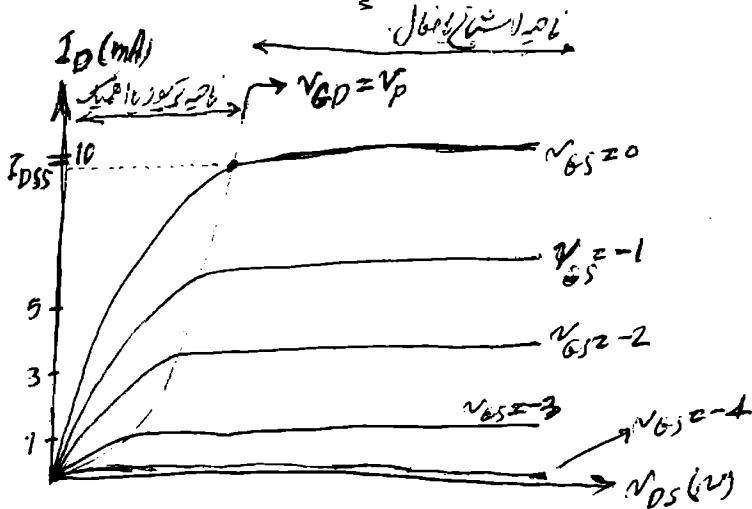 ناحیه اشباع یا فعال
I_D (mA)
ناحیه تریود یا اهمیک
v_GD = v_P
I_DSS = 10
v_GS = 0
v_GS = -1
5
v_GS = -2
3
v_GS = -3
v_GS = -4
1
v_DS (v)